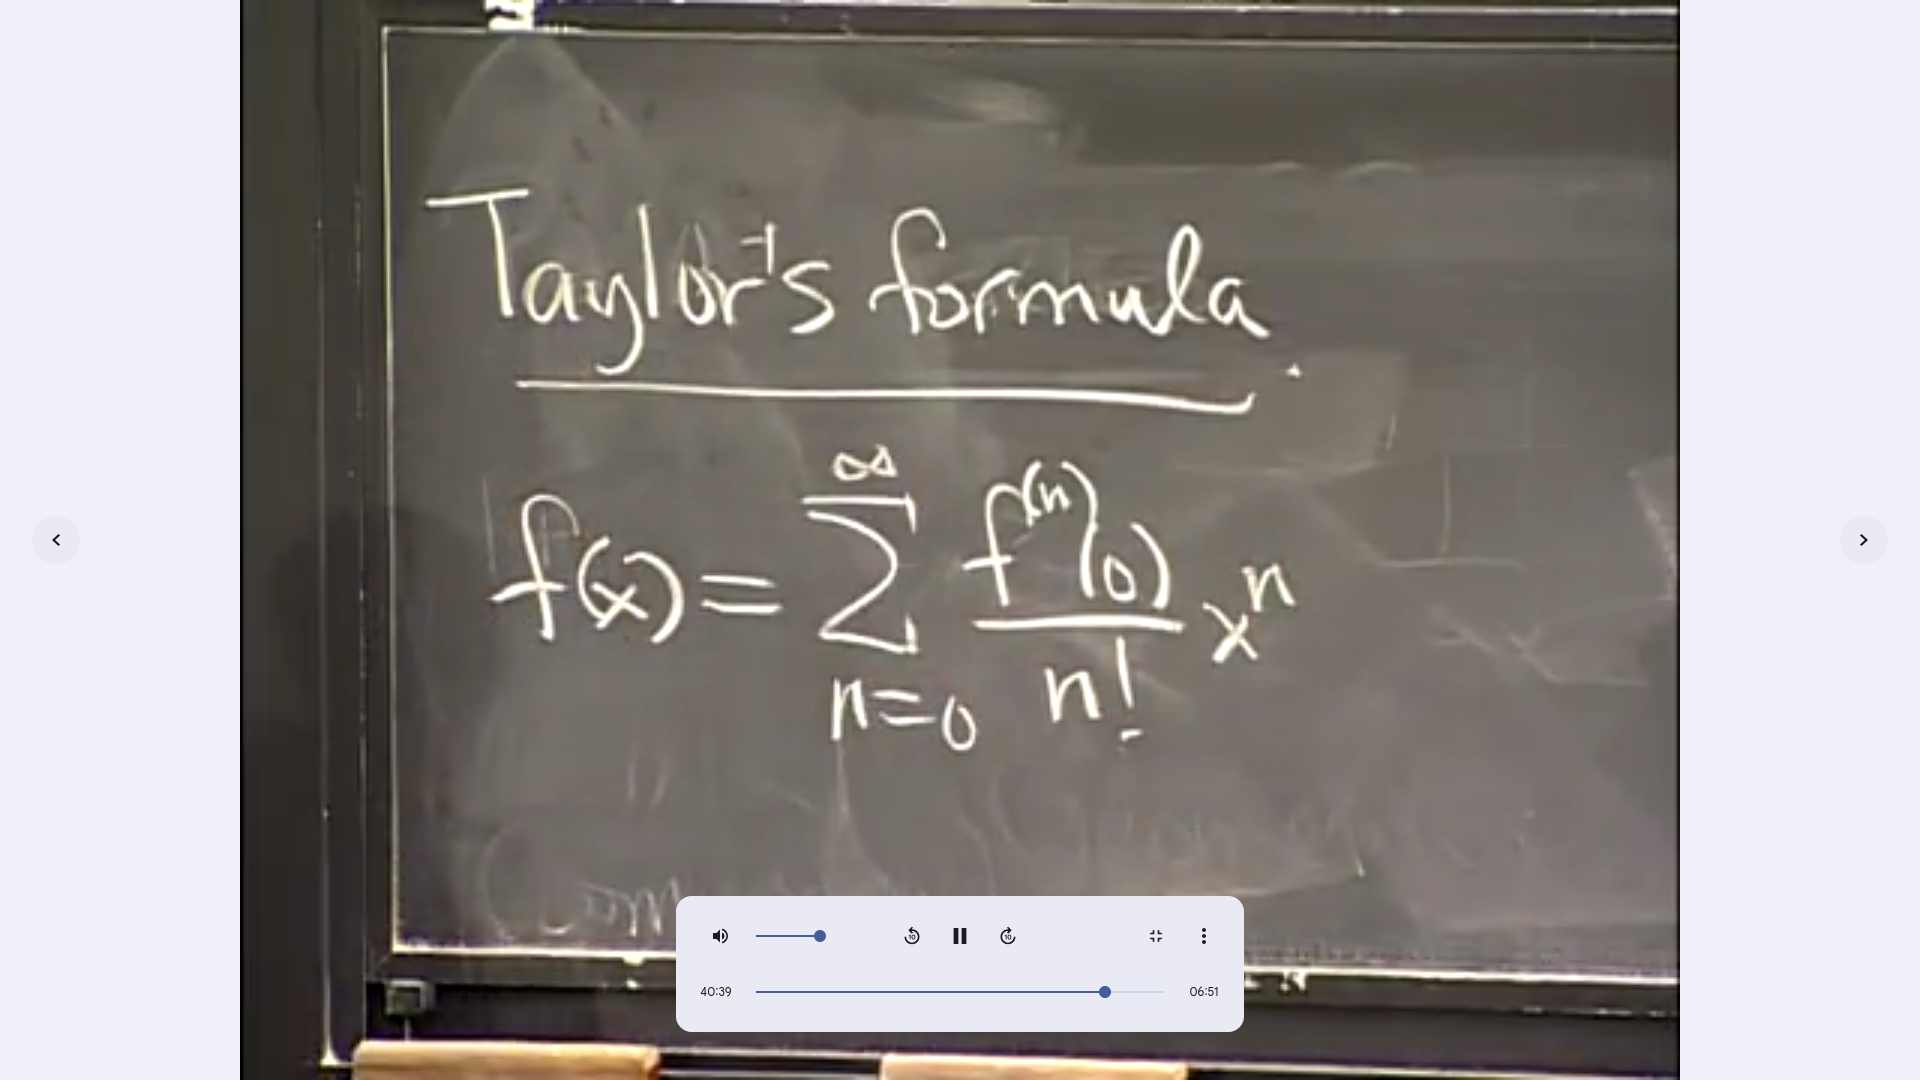 Taylor's formula
f(x) = ∞∑n=0 f⁽ⁿ⁾(0)/n! xⁿ
40:39 06:51